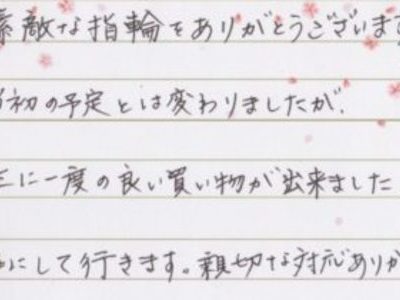 素敵な指輪をありがとうございます
当初の予定とは変わりましたが、
生に一度の良い買い物が出来ました
にして行きます。親切な対応ありが